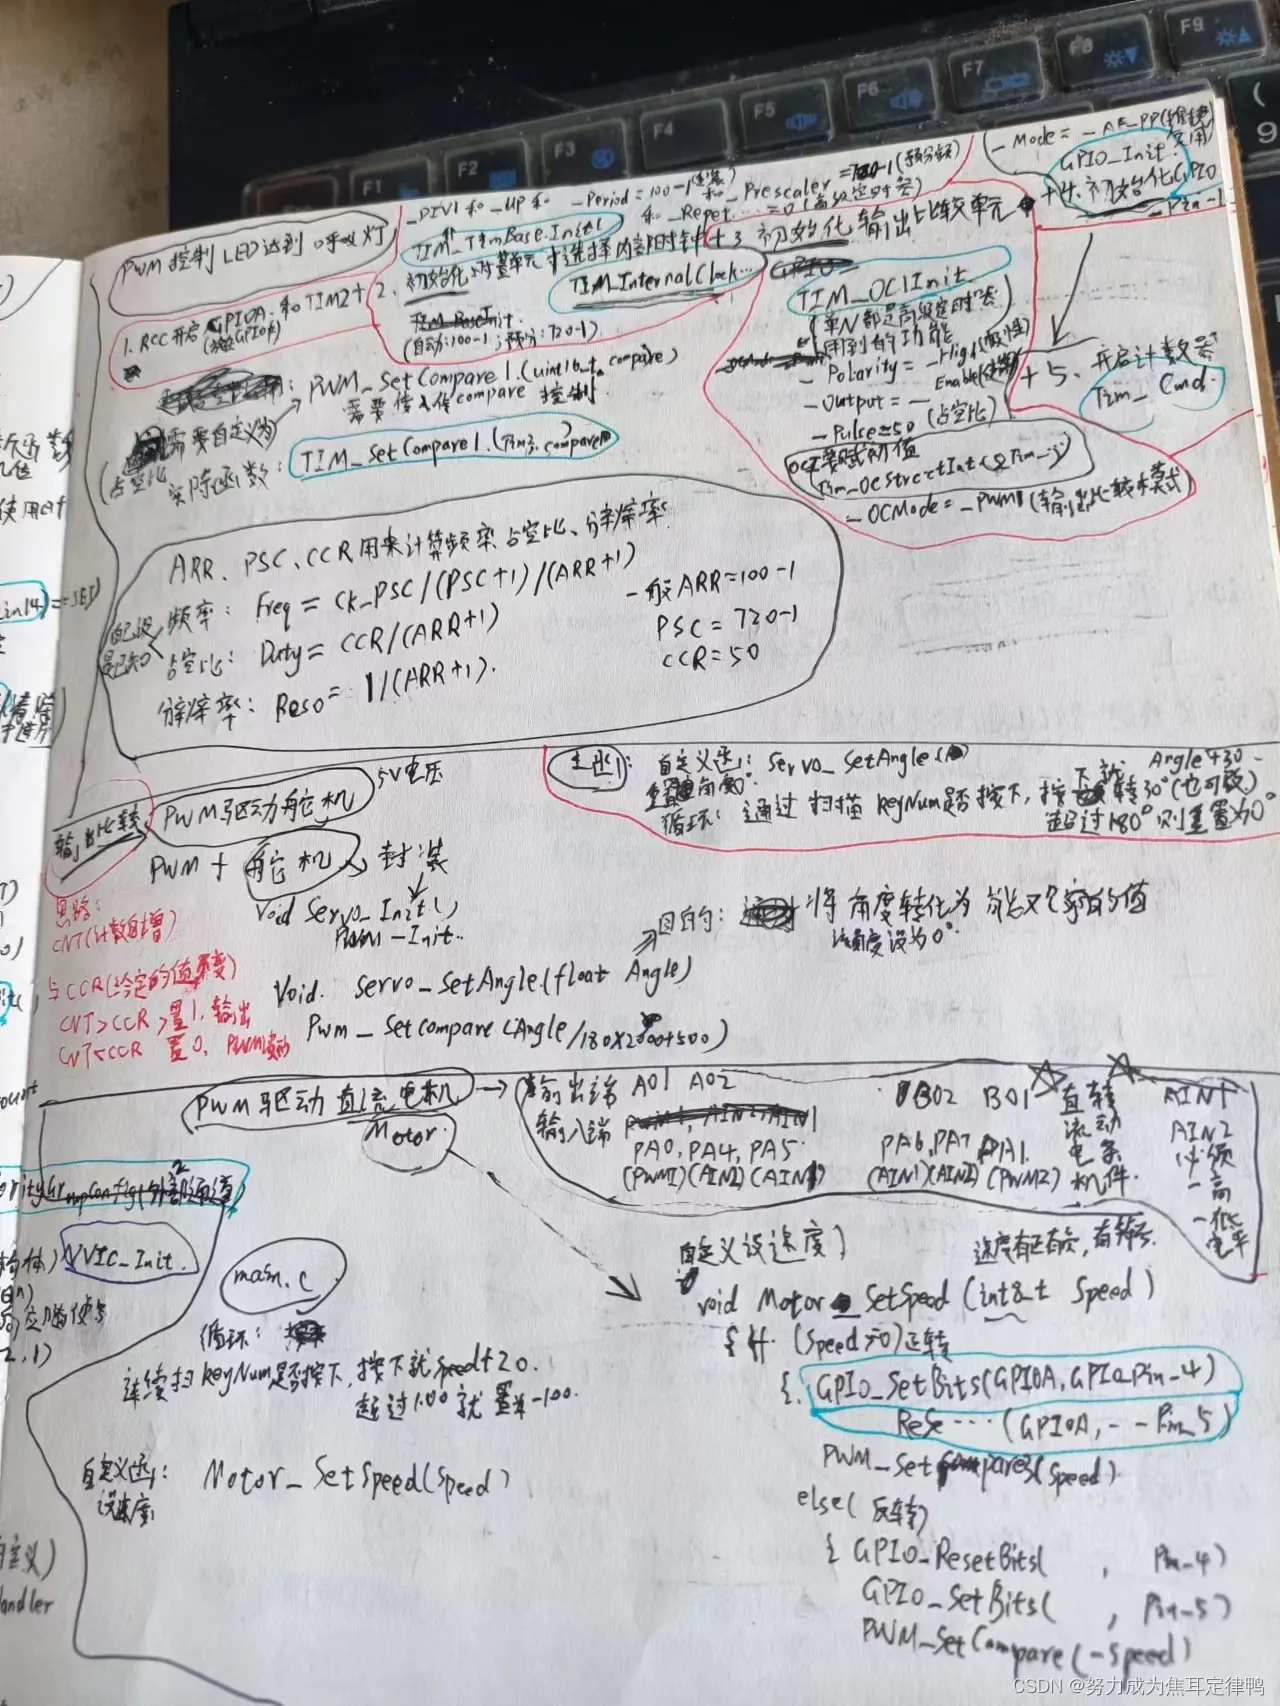 F1
F2
F3
F4
F5
F6
F7
F8
F9
9
_Mode = _AF_PP(
GPIO_Init
+4.初始化GPIO
_Pin_1
_DIV1 和 _UP 和 _Period = 100-1(重装) 和 _Prescaler = 720-1(预分频)
和 _Repet... = 0 (高级定时器)
PWM控制LED达到呼吸灯
1. RCC开启GPIOA和TIM2+
2.
TIM_TimBase.Init(
初始化时基单元 并选择内部时钟
TIM_InternalClock...
(自动:100-1;预分:720-1)
+3 初始化输出比较单元
TIM_OC1Init
(带N都是高级定时器
用到的功能
_Polarity = _High(极性)
_Output = _Enable(使能)
_Pulse = 50 (占空比)
赋初值
Tim_OCStructInt(&Tim_)
_OCMode = _PWM1 (输出比较模式)
+5. 开启计数器
Tim_Cmd.
PWM_SetCompare1.(uint16_t compare)
需要传入传compare 控制
需要自定义为
占空比
实际函数:
TIM_SetCompare1.(Tim2, compare)
ARR、PSC、CCR用来计算频率、占空比、分辨率
自己设
是已知
频率: Freq = CK_PSC/(PSC+1)/(ARR+1)
占空比: Duty = CCR/(ARR+1)
分辨率: Reso = 1/(ARR+1).
一般ARR=100-1
PSC=720-1
CCR=50
输出比较
PWM驱动舵机
5V电压
PWM + 舵机, 封装
void Servo_Init()
Pwm_Init..
主函:
自定义函: Servo_SetAngle(A
设置角度°.
循环: 通过扫描KeyNum是否按下,按下就转30°(也可改)
Angle+30
超过180°则重置为0°
思路:
CNT(计数自增)
与CCR(给定的值
CNT>CCR 置1,输出
CNT<CCR 置0, PWM波形
目的: 将角度转化为占空比的值
Void. Servo_SetAngle(float Angle)
Pwm_SetCompare(Angle/180X2000+500)
PWM驱动直流电机
Motor
输出端 A01 A02
BO2 BO1
输入端
PA0, PA4, PA5
(PWM1)(AIN2)(AIN1)
PA6, PA7, PA1.
(AIN1)(AIN2)(PWM2)
直流电机
转动条件
AIN1
AIN2
必须
一高
一低
电平
自定义设速度)
速度有正有负,有符号
void Motor_SetSpeed (int8_t Speed)
(Speed 正转
{ GPIO_SetBits(GPIOA, GPIO_Pin_4)
Rese...(GPIOA, _ _Pin_5)
PWM_Setcompare3(Speed)
else( 反转)
{ GPIO_ResetBits( , Pin_4)
GPIO_SetBits( , Pin_5)
PWM_SetCompare(-Speed)
NVIC_Init.
main.c
循环:
连续扫KeyNum是否按下,按下就speed+20.
超过100就置-100.
自定义函:
设速度
Motor_SetSpeed(Speed)
CSDN @努力成为焦耳定律鸭